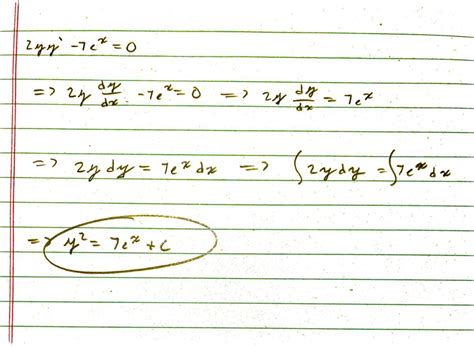 2yy' - 7e^x = 0
=> 2y dy/dx - 7e^x = 0 => 2y dy/dx = 7e^x
=> 2y dy = 7e^x dx => ∫2y dy = ∫7e^x dx
=> y^2 = 7e^x + c